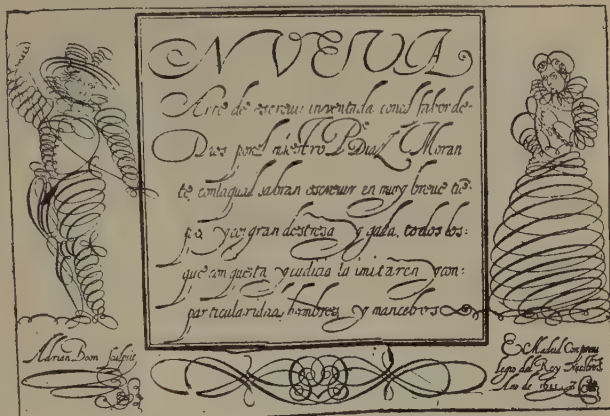 NVEUA
Arte de escreuir inventada con el fabor de
Dios por el maestro P.º Diaz Moran
te, con la qual sabran escreuir en muy breue tiē-
po y con gran destresa y gala todos los
que con queſta y cudicia la imitaren y con
particularidad, hombres y mancebos
Adrian Boon sculpsit
En Madrid Con preui
legio del Rey Nuestro S.
Ano de